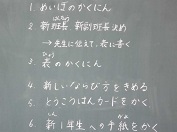 1. めいぼのかくにん
2. 新班長 新副班長決め
はんちょう
→先生に伝えて、表に書く
3. 表のかくにん
ひょう
4. 新しいならび方をきめる
5. どうこうはんカードをかく
6. 新1年生への手紙をかく
しん
がみ